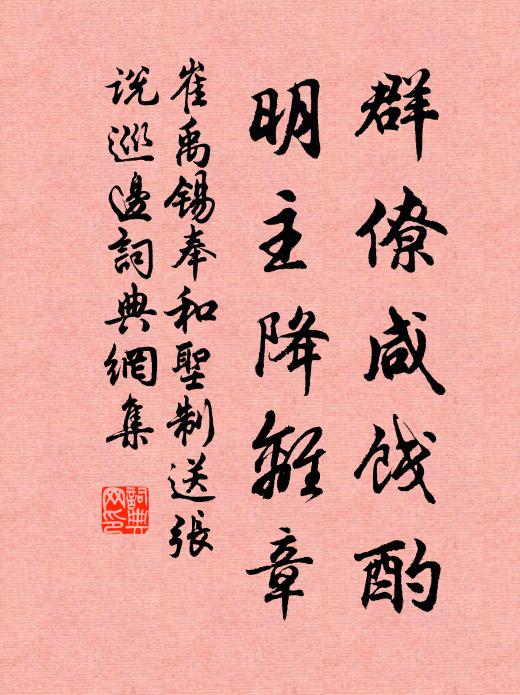 群僚咸饯酌
明主降離章
崔禹锡奉和聖制送張
说巡邊詞典網集
詞典网印